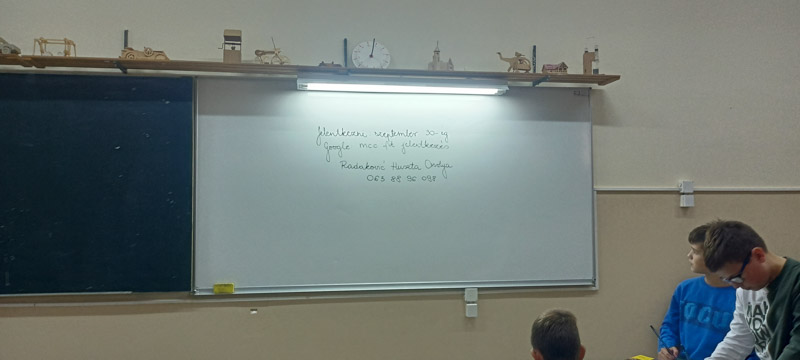 Jelentkezni szeptember 30-ig
Google mcc ifi jelentkezés
Radaković Huszta Orsolya
063 88 96 098